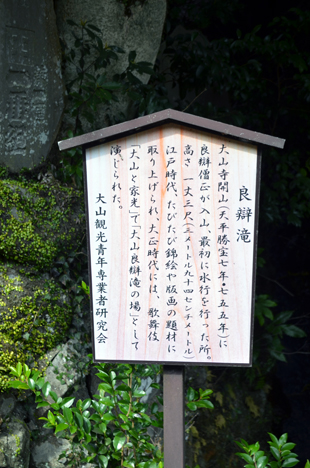 良辯滝
大山寺開山(天平勝宝七年・七五五年)に
良辯僧正が入山、最初に水行を行った所。
高さ 一丈三尺(三メートル九十四センチメートル)
江戸時代、たびたび錦絵や版画の題材に
取り上げられ、大正時代には、歌舞伎
「大山と家光」で「大山良辯滝の場」として
演じられた。
大山観光青年専業者研究会